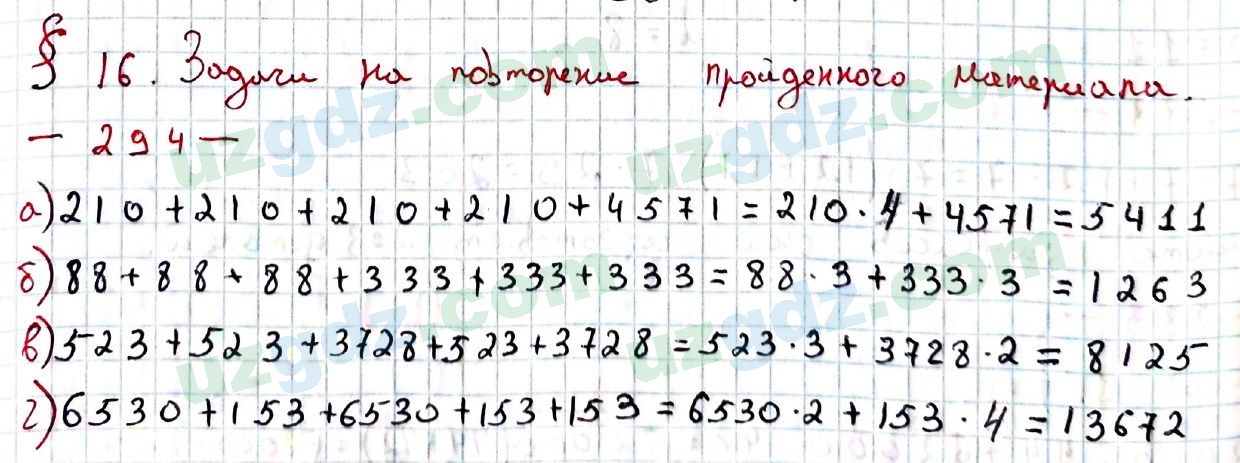 § 16. Задачи на повторение пройденного материала.
— 294 —
а) 210 + 210 + 210 + 210 + 4571 = 210 · 4 + 4571 = 5411
б) 88 + 88 + 88 + 333 + 333 + 333 = 88 · 3 + 333 · 3 = 1263
в) 523 + 523 + 3728 + 523 + 3728 = 523 · 3 + 3728 · 2 = 8125
г) 6530 + 153 + 6530 + 153 + 153 = 6530 · 2 + 153 · 4 = 13672
uzgdz.com
uzgdz.com
uzgdz.com
uzgdz.com